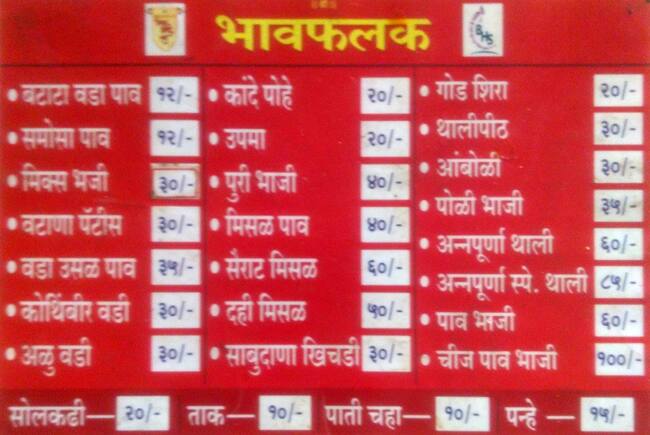 भावफलक
• बटाटा वडा पाव १२/-
• समोसा पाव १२/-
• मिक्स भजी ३०/-
• वटाणा पॅटीस ३०/-
• वडा उसळ पाव ३५/-
• कोथिंबीर वडी ३०/-
• अळु वडी ३०/-
• कांदे पोहे २०/-
• उपमा २०/-
• पुरी भाजी ४०/-
• मिसळ पाव ४०/-
• सैराट मिसळ ६०/-
• दही मिसळ ५०/-
• साबुदाणा खिचडी ३०/-
• गोड शिरा २०/-
• थालीपीठ ३०/-
• आंबोळी ३०/-
• पोळी भाजी ३५/-
• अन्नपूर्णा थाली ६०/-
• अन्नपूर्णा स्पे. थाली ८५/-
• पाव भाजी ६०/-
• चीज पाव भाजी १००/-
सोलकढी — २०/- ताक — १०/- पाती चहा — १०/- पन्हे — १५/-